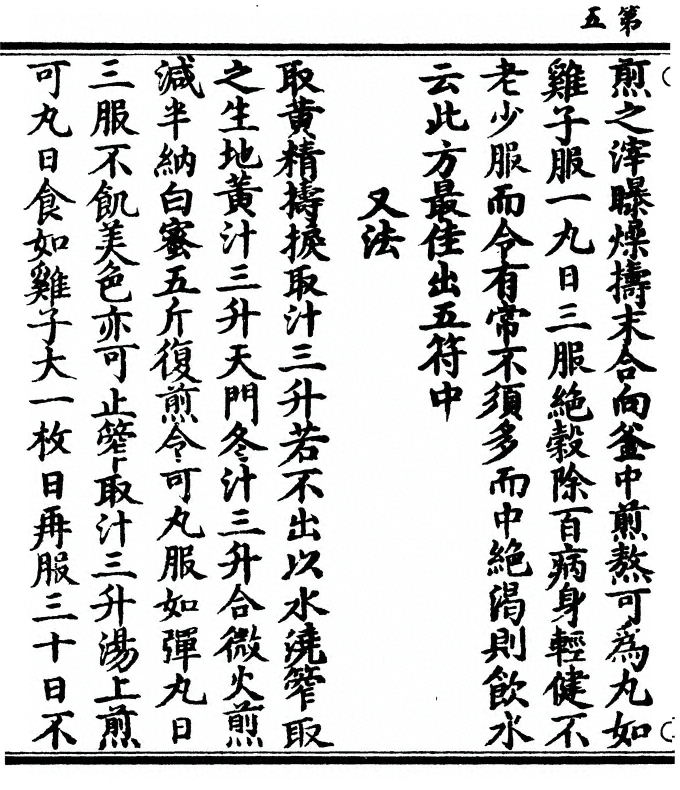 第五
煎之滓曝燥擣末合向釜中煎熬可爲丸如
雞子服一丸日三服絶穀除百病身輕健不
老少服而令有常不須多而中絶渴則飲水
云此方最佳出五符中
又法
取黃精擣捩取汁三升若不出以水澆笮取
之生地黃汁三升天門冬汁三升合微火煎
減半納白蜜五斤復煎令可丸服如彈丸日
三服不飢美色亦可止笮取汁三升湯上煎
可丸日食如雞子大一枚日再服三十日不